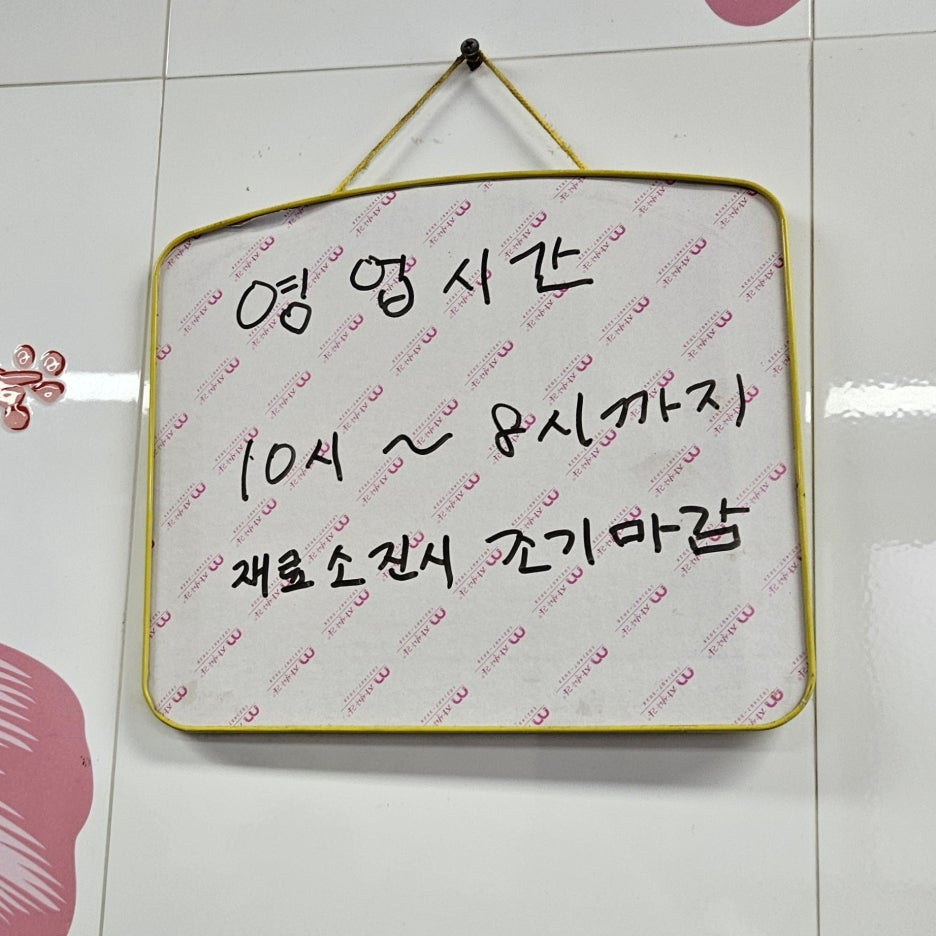 영업시간
10시 ~ 8시까지
재료소진시 조기마감